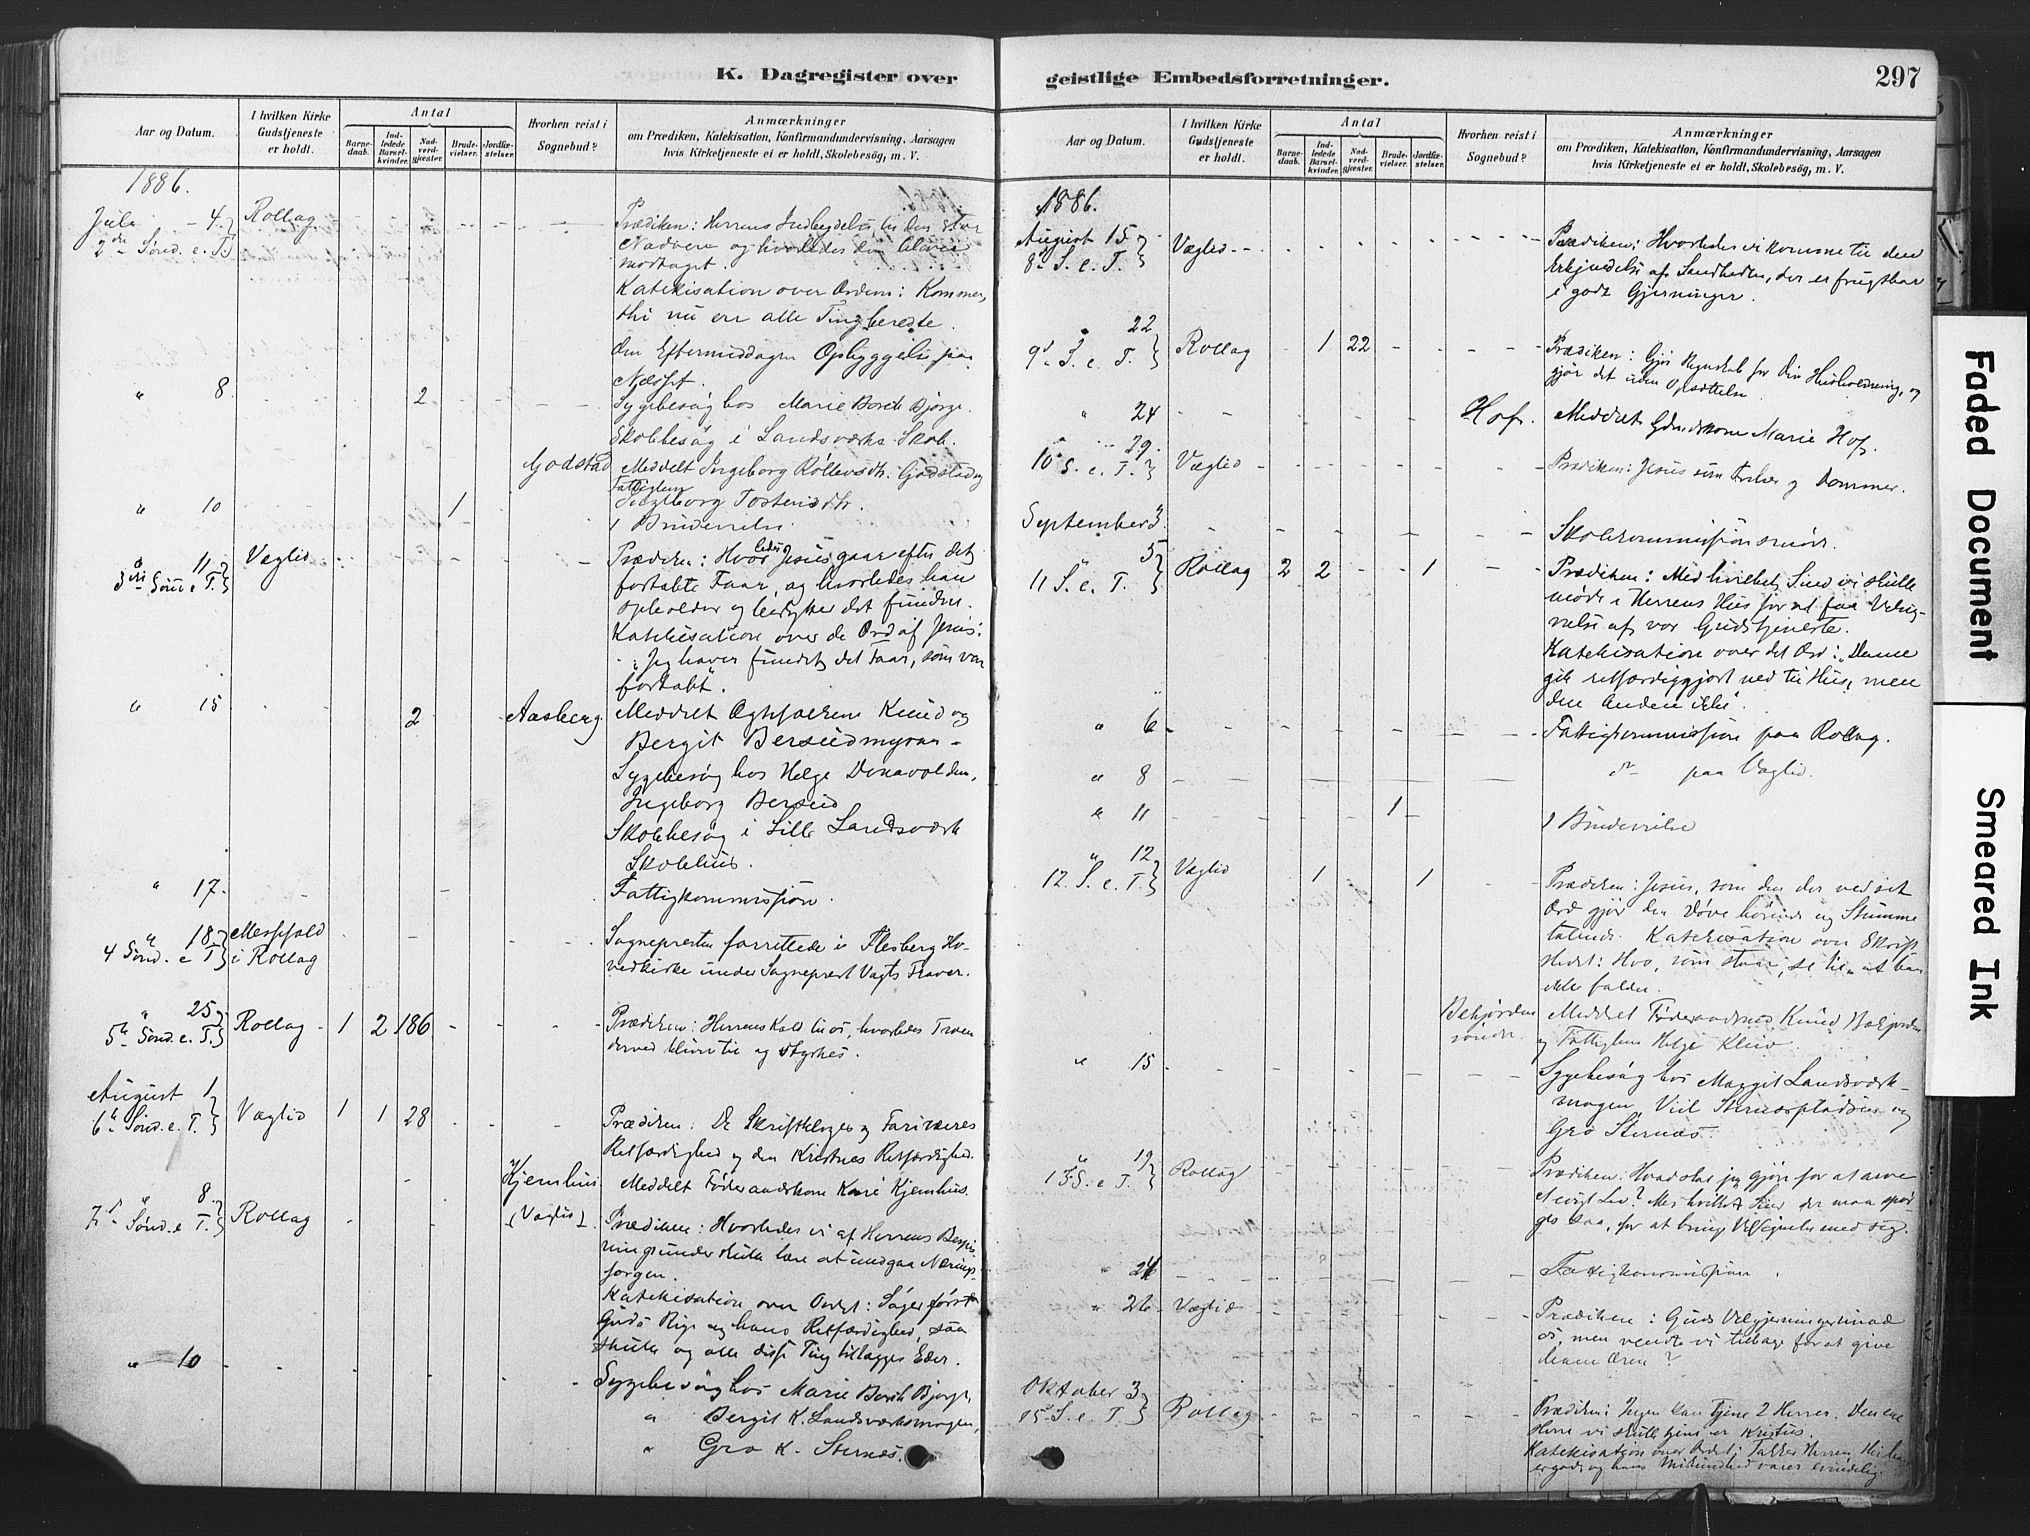 K. Dagregister over
geistlige Embedsforretninger.
297
Aar og Datum.
I hvilken Kirke
Gudstjeneste
er holdt.
Antal
Barne-
daab.
Ind-
ledede
Barsel-
kvinder.
Nad-
verd-
gjæster.
Brude-
vielser.
Jordfæ-
stelser.
Hvorhen reist i
Sognebud?
Anmærkninger
om Prædiken, Katekisation, Konfirmandundervisning, Aarsagen
hvis Kirketjeneste ei er holdt, Skolebesøg, m. V.
1886.
Juli - 4.
2den Sønd. e. T.
Rollag
Prædiken: Herrens Indbydelse til den store
Nadvere og hvorledes den bliver
modtaget.
Katekisation over Ordene: Kommer,
thi nu ere alle Ting beredte.
Om Eftermiddagen Opbyggelse paa
" 8
2
Sygebesøg hos Marie Bjørge.
Skolebesøg i Landsværks Skole.
Gjodstad
Meddelt Ingeborg
Fattiglem
Tostensdtr.
" 10
1
1 Brudevielse
" 11
3die Sønd e. T.
Væglid
Prædiken: Hvorledes Jesus gaar efter det
fortabte Faar, og hvorledes han
opholder og beskytter det fundne.
Katekisation over de Ord af Jesus:
"Jeg haver fundet det Faar, som var
fortabt".
" 15
2
Aasberg
Meddelt Ægtefolkene Knud og
Bergit Bersudmyran -
Sygebesøg hos Helge Donavolden,
Ingeborg Bersud
Skolebesøg i Lille Landsværk
Skolehus.
" 17.
Fattigkommission.
" 18
4 Sønd. e T.
Messefald
i Rollag
Sognepresten forrettede i Flesberg Ho-
vedkirke under Sogneprest Vogts Fravær.
" 25
5te Sønd. e. T.
Rollag
1 2 186
Prædiken: Herrens Kald til os, hvorledes Troen
derved bliver til og styrkes.
August 1
6te Sønd. e. T.
Væglid
1 1 28
Prædiken: De Skriftkloges og Farisæeres
Retfærdighed og den Kristnes Retfærdighed.
Kjemhus
(Væglid).
Meddelt Føderaadskone Kari Kjemhus.
" 8
7de Sønd. e T.
Rollag
Prædiken: Hvorledes vi af Herrens Bespis-
ningsunder skulle lære at undgaa Nærings-
sorgen.
Katekisation over Ordet: Søger først
Guds Rige og hans Retfærdighed, saa
skulle og alle disse Ting tillægges Eder.
" 10
Sygebesøg hos Marie Bjørge,
" Bergit K. Landsværksmogen,
" Gro K. Sternæs.
Aar og Datum.
I hvilken Kirke
Gudstjeneste
er holdt.
Antal
Barne-
daab.
Ind-
ledede
Barsel-
kvinder.
Nad-
verd-
gjæster.
Brude-
vielser.
Jordfæ-
stelser.
Hvorhen reist i
Sognebud?
Anmærkninger
om Prædiken, Katekisation, Konfirmandundervisning, Aarsagen
hvis Kirketjeneste ei er holdt, Skolebesøg, m. V.
1886.
August 15
8de S. e. T.
Væglid
Prædiken: Hvorledes vi komme til den
Erkjendelse af Sandheden, der er frugtbar
i gode Gjerninger.
" 22
9de S. e. T.
Rollag
1 22
Prædiken: Gjør Regnskab for din Husholdning, og
gjør det uden Opsættelse.
" 24
Hof.
Meddelt Marie Hof.
" 29.
10 S. e. T.
Væglid
Prædiken: Jesus som Frelser og Dommer.
September 3
Skolekommissionsmøde.
" 5
11 S. e. T.
Rollag
2 2 1
Prædiken: Med hvilket Sind vi skulle
møde i Herrens Hus for at faa Velsig-
nelse af vor Gudstjeneste.
Katekisation over det Ord: "Denne
gik retfærdiggjort ned til Hus, men
den Anden ikke".
" 6
Fattigkommission paa Rollag.
" 8
do paa Væglid.
" 11
1
1 Brudevielse
" 12
12. S. e. T.
Væglid
1 1
Prædiken: Jesus, som den der ved sit
Ord gjør den Døve hørende og Stumme
talende. Katekisation over Skrift-
stedet: Hvo, som staar, se til, at han
ikke falder.
" 15
Bekjorden
søndre.
Meddelt Føderaadsmand Knud Bækjorden
og Fattiglem Helge Kleiv.
Sygebesøg hos Margit Landsværk-
mogen, Sternæspladsen og
Gro Sternæs.
" 19
13 S. e T.
Rollag
Prædiken: Hvad skal jeg gjøre for at arve
et evigt Liv? Med hvilket Sind der maa spør-
ges saa, for at bringe Velsignelse med sig.
" 24
Fattigkommission.
" 26
Væglid
Prædiken: Guds Velgjerninger imod
os, men vende vi tilbage for at give
denne Æren?
Oktober 3
15 S. e. T.
Rollag
Prædiken: Ingen kan tjene 2 Herrer. Den ene
Herre vi skulle tjene er Kristus.
Katekisation over Ordet: Takker Herren, thi han
er god og hans Miskundhed varer evindelig.
Faded Document
Smeared Ink